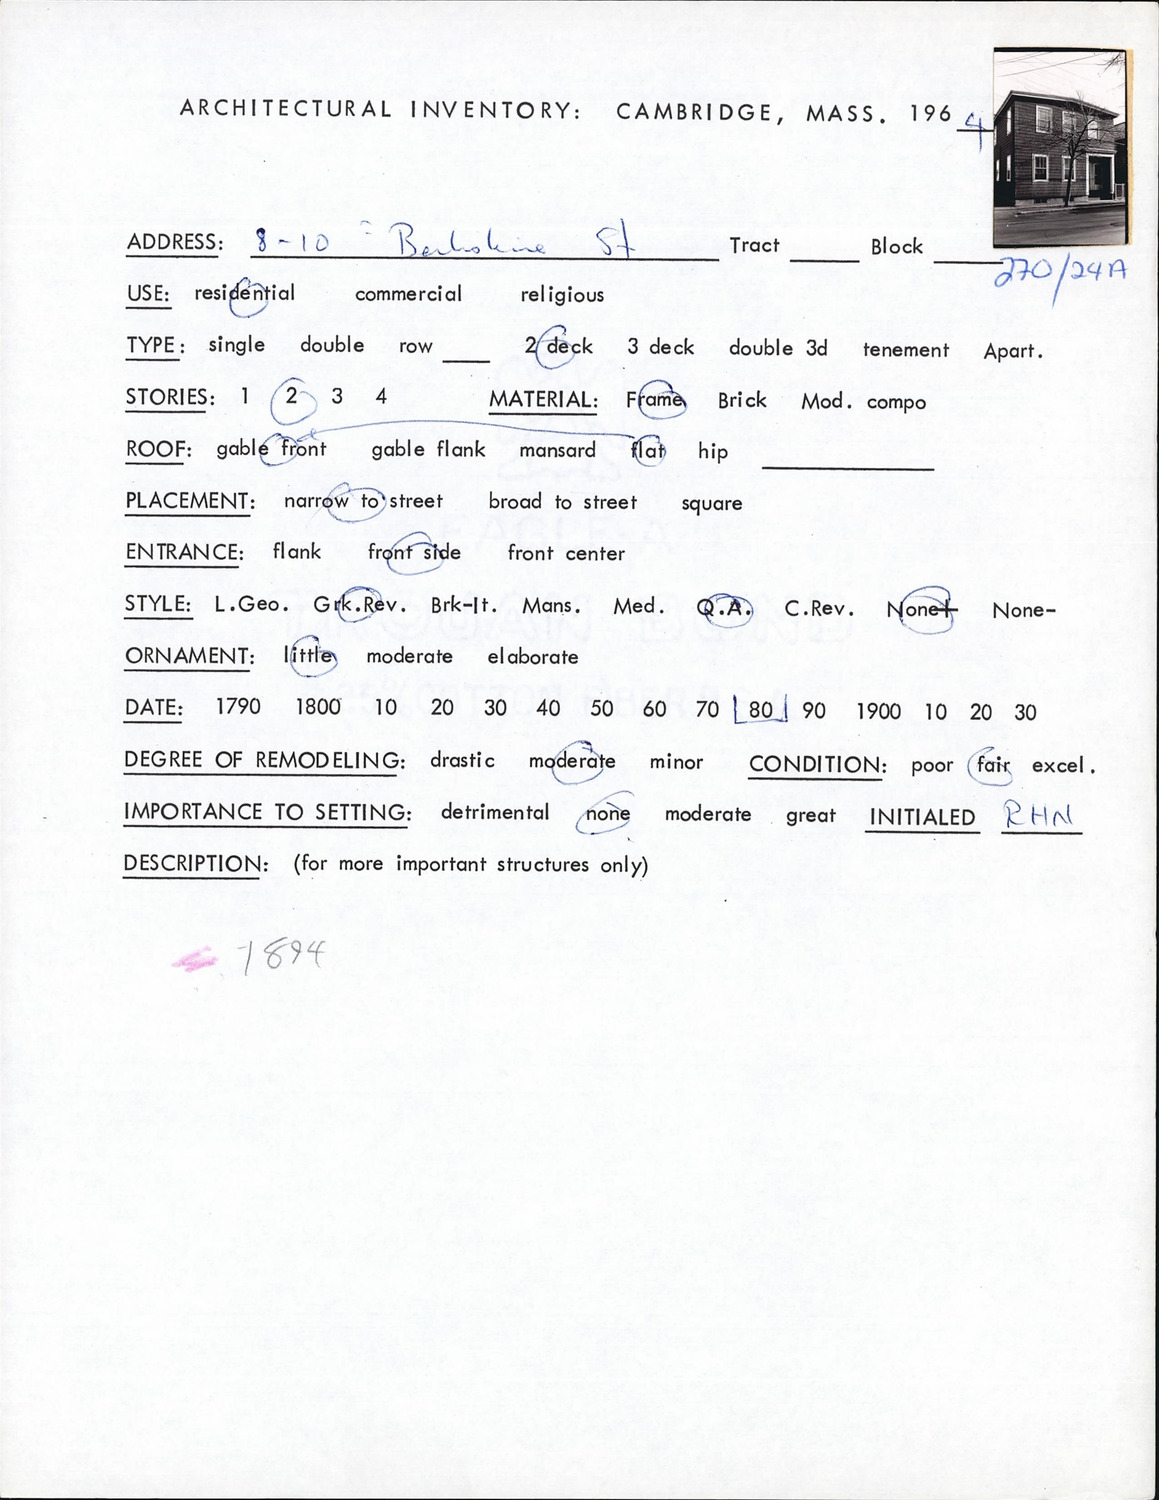 ARCHITECTURAL INVENTORY: CAMBRIDGE, MASS. 1964
ADDRESS: 8-10 Berkshire St Tract Block
270/24A
USE: residential commercial religious
TYPE: single double row 2 deck 3 deck double 3d tenement Apart.
STORIES: 1 2 3 4 MATERIAL: Frame Brick Mod. compo
ROOF: gable front gable flank mansard flat hip
PLACEMENT: narrow to street broad to street square
ENTRANCE: flank front side front center
STYLE: L.Geo. Grk.Rev. Brk-It. Mans. Med. Q.A. C.Rev. None+ None-
ORNAMENT: little moderate elaborate
DATE: 1790 1800 10 20 30 40 50 60 70 80 90 1900 10 20 30
DEGREE OF REMODELING: drastic moderate minor CONDITION: poor fair excel.
IMPORTANCE TO SETTING: detrimental none moderate great INITIALED RHN
DESCRIPTION: (for more important structures only)
1894